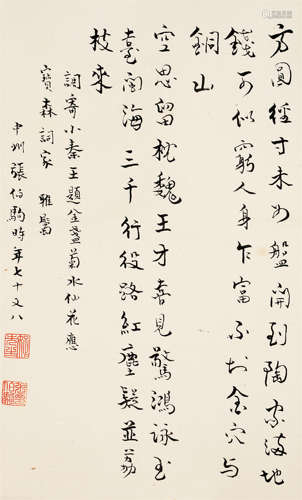 方圓徑寸未如盤開到陶家滿地
錢可似窮人身乍富不封金穴與
銅山
空思留枕魏王才喜見驚鴻詠玉
臺閩海三千行役路紅塵疑並荔
枝來
詞寄小秦王題金盞菊水仙花應
寶森詞家 雅屬
中州張伯駒時年七十又八